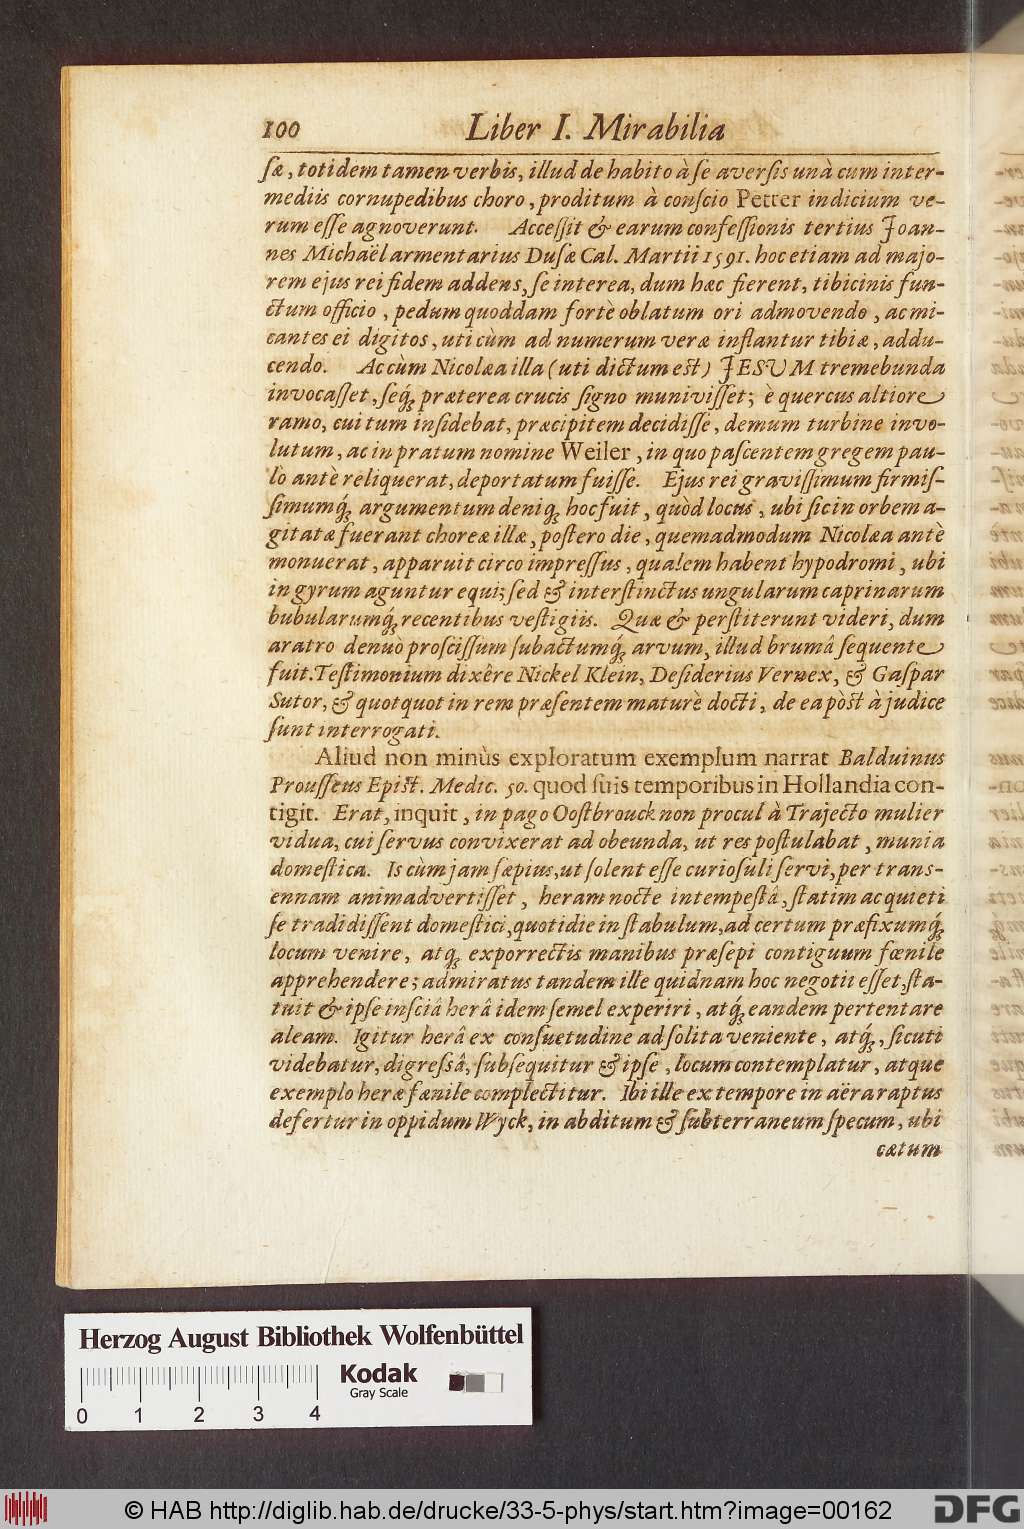 100 Liber I. Mirabilia
ſæ, totidem tamen verbis, illud de habito à ſe averſis unà cum inter-
mediis cornupedibus choro, proditum à conſcio Petter indicium ve-
rum eſſe agnoverunt. Acceſſit & earum confeſſionis tertius Joan-
nes Michaël armentarius Duſæ Cal. Martii 1591. hoc etiam ad majo-
rem ejus rei fidem addens, ſe interea, dum hæc fierent, tibicinis fun-
ctum officio, pedum quoddam fortè oblatum ori admovendo, ac mi-
cantes ei digitos, uti cùm ad numerum veræ inflantur tibiæ, addu-
cendo. Ac cùm Nicolæa illa (uti dictum est) JESUM tremebunda
invocaſſet, ſeq́ꝫ præterea crucis ſigno muniviſſet; è quercus altiore
ramo, cui tum inſidebat, præcipitem decidiſſe, demum turbine invo-
lutum, ac in pratum nomine Weiler, in quo paſcentem gregem pau-
lò antè reliquerat, deportatum fuiſſe. Ejus rei graviſſimum firmiſ-
ſimumq́ꝫ argumentum deniqꝫ hoc fuit, quòd locus, ubi ſic in orbem a-
gitatæ fuerant choreæ illæ, poſtero die, quemadmodum Nicolæa antè
monuerat, apparuit circo impreſſus, qualem habent hypodromi, ubi
in gyrum aguntur equi; ſed & interſtinctus ungularum caprinarum
bubularumq́ꝫ recentibus veſtigiis. Quæ & perſtiterunt videri, dum
aratro denuò proſciſſum ſubactumq́ꝫ arvum, illud brumâ ſequente
fuit. Teſtimonium dixêre Nickel Klein, Deſiderius Vernex, & Gaſpar
Sutor, & quotquot in rem præſentem maturè docti, de ea pòst à judice
ſunt interrogati.
Aliud non minùs exploratum exemplum narrat Balduinus
Prouſſeus Epist. Medic. 50. quod ſuis temporibus in Hollandia con-
tigit. Erat, inquit, in pago Ooſtbrouck non procul à Trajecto mulier
vidua, cui ſervus convixerat ad obeunda, ut res poſtulabat, munia
domeſtica. Is cùm jam ſæpius, ut ſolent eſſe curioſuli ſervi, per trans-
ennam animadvertiſſet, heram nocte intempeſtâ, ſtatim ac quieti
ſe tradidiſſent domeſtici, quotidie in ſtabulum, ad certum præfixumq́ꝫ
locum venire, atqꝫ exporrectis manibus præſepi contiguum fœnile
apprehendere; admiratus tandem ille quidnam hoc negotii eſſet, ſta-
tuit & ipſe inſciâ herâ idem ſemel experiri, atq́ꝫ eandem pertentare
aleam. Igitur herâ ex conſuetudine ad ſolita veniente, atq́ꝫ, ſicuti
videbatur, digreſsâ, ſubſequitur & ipſe, locum contemplatur, atque
exemplo heræ fænile complectitur. Ibi ille ex tempore in aëra raptus
defertur in oppidum Wyck, in abditum & ſubterraneum ſpecum, ubi
cætum
Herzog August Bibliothek Wolfenbüttel
Kodak
Gray Scale
0 1 2 3 4
© HAB http://diglib.hab.de/drucke/33-5-phys/start.htm?image=00162
DFG